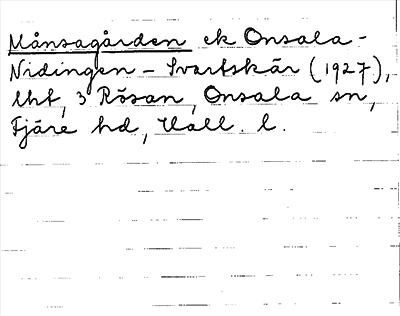 Månsagården ek Onsala -
Nidingen - Svartskär (1927),
lht, 3 Rösan, Onsala sn,
Fjäre hd, Hall. l.